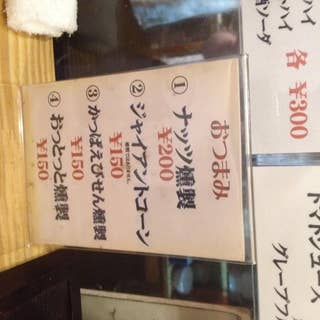 おつまみ
①ナッツ燻製
¥200
②ジャイアントコーン
¥150
③かっぱえびせん燻製
¥150
④おっとっと燻製
¥150
ハイ
ハイ
ソーダ
各¥300
トマトジュース
グレープフ